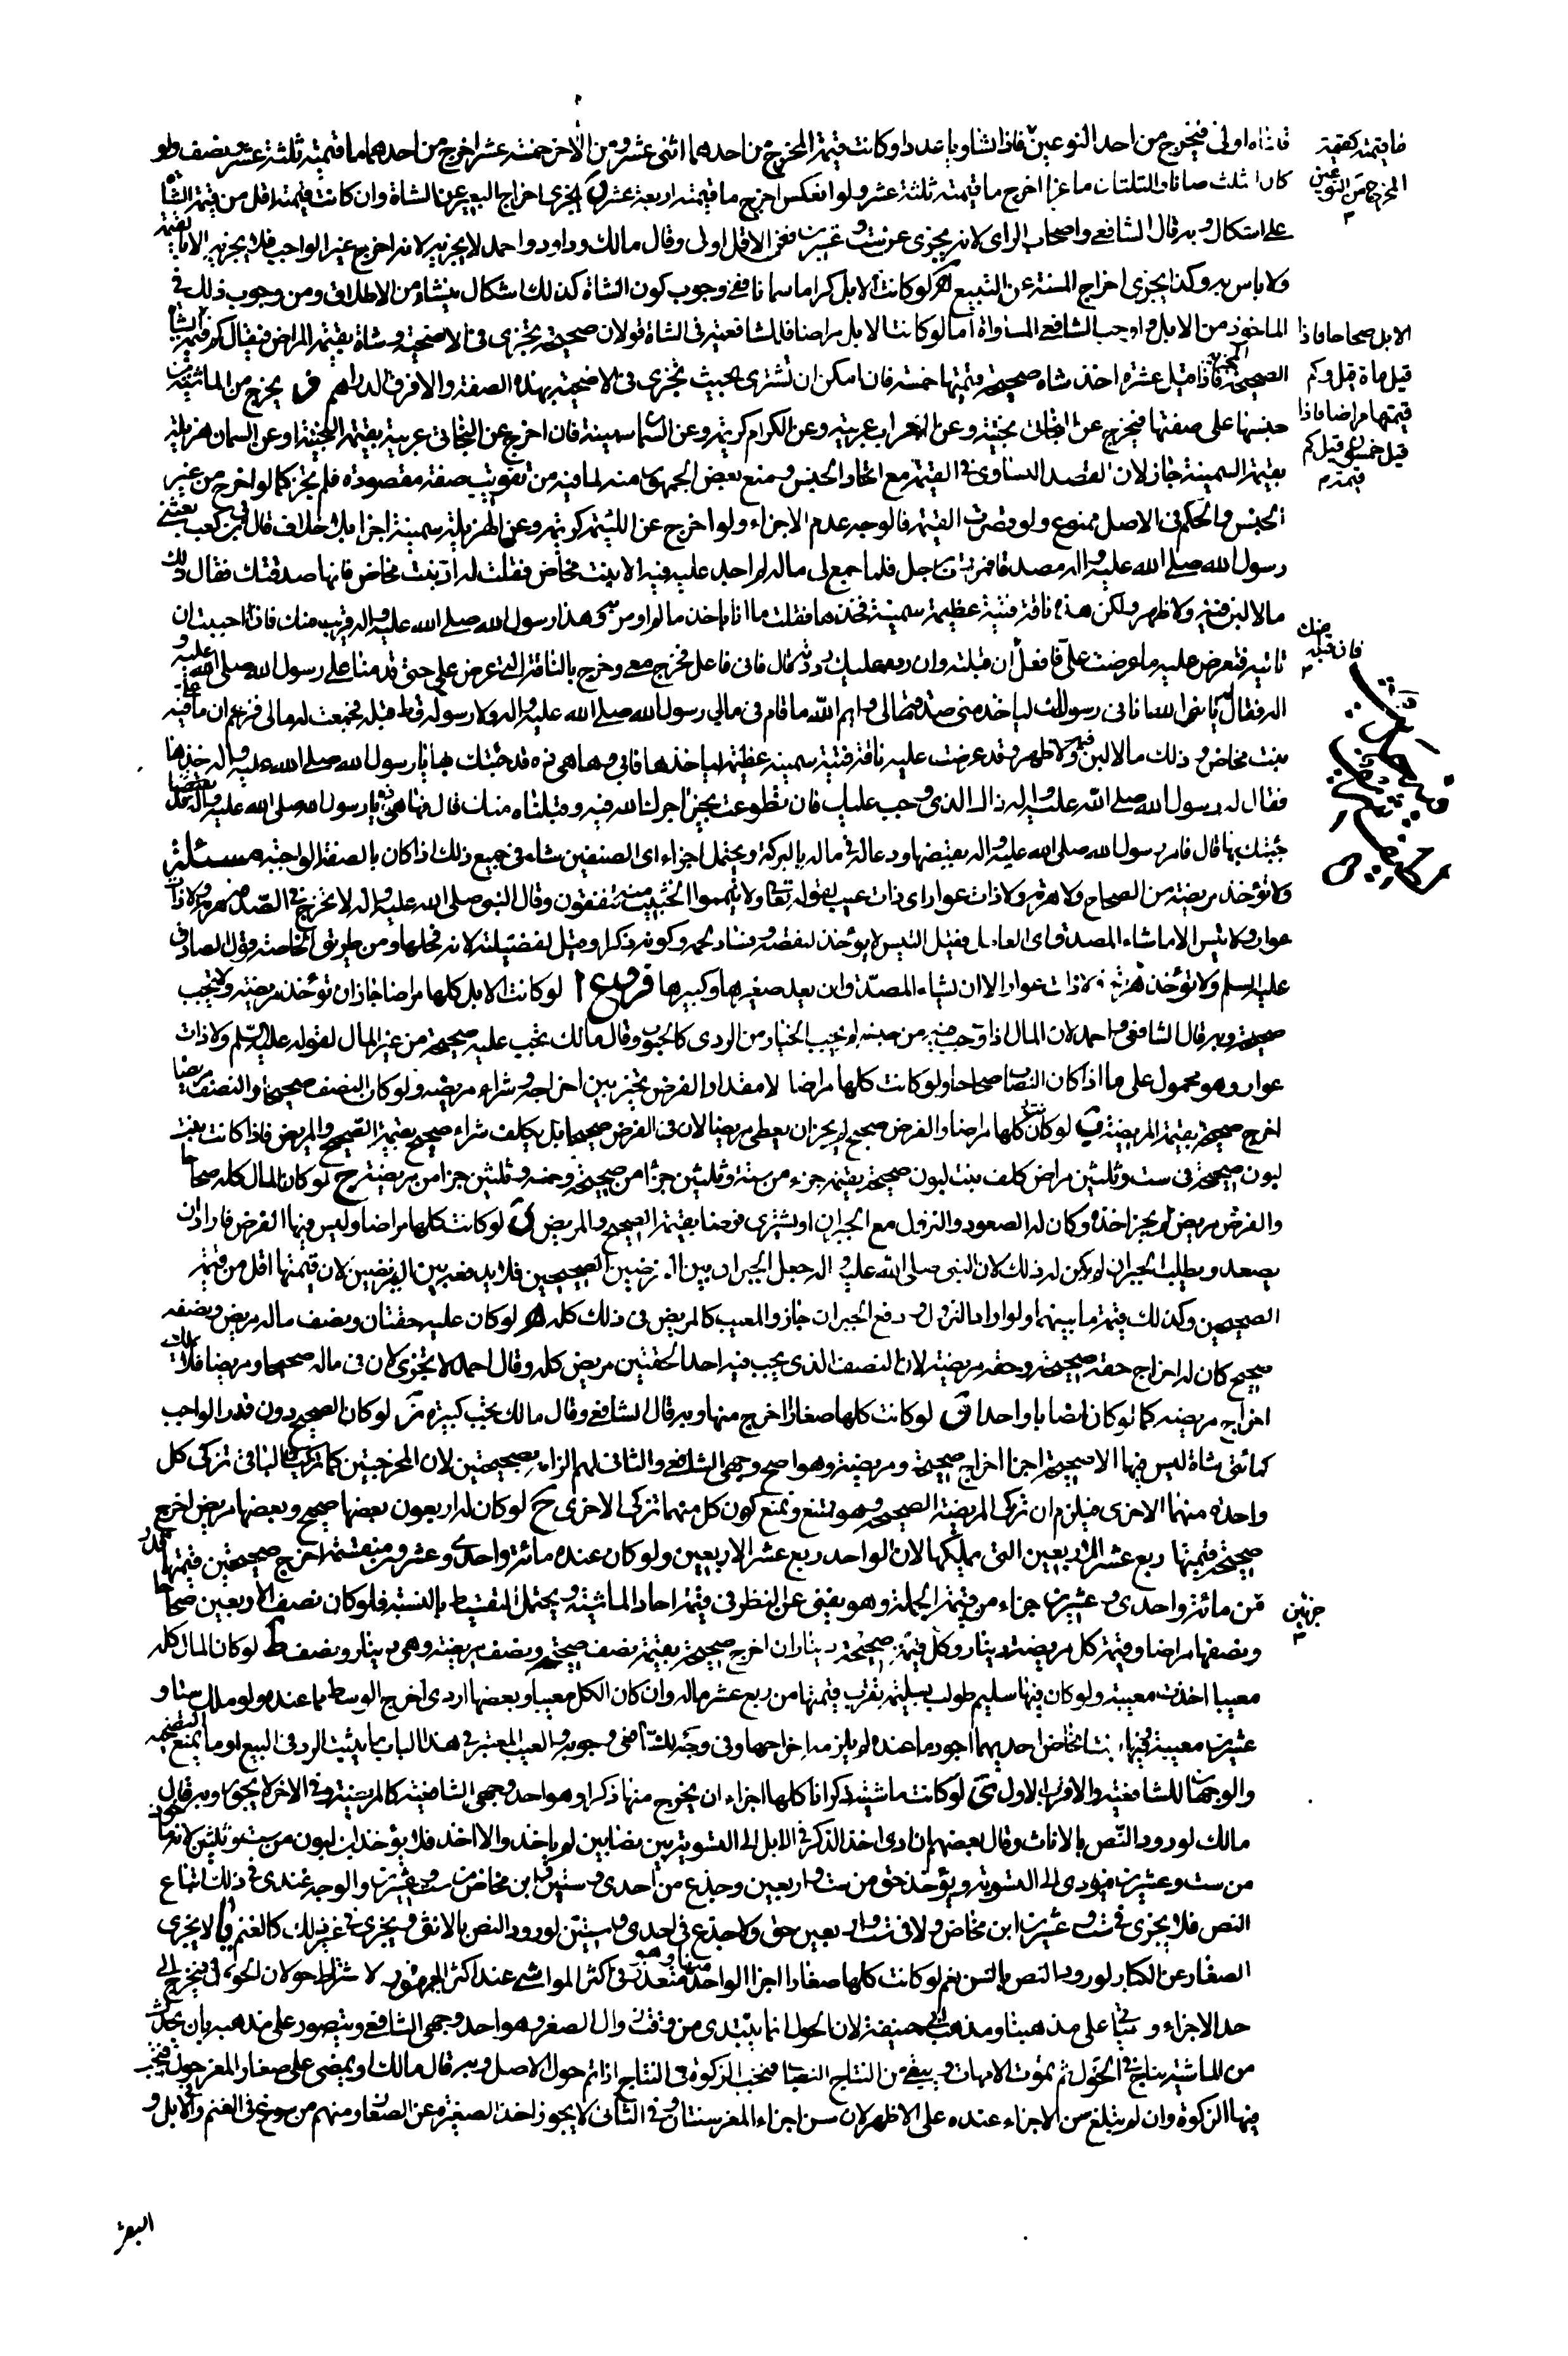 فاذا اولى فيخرج من احد النوعين فاذا تساويا عددا وكانت قيمة المخرج من احدهما اثنى عشر ومن الاخر خمسة عشر اخرج من احدهما ما قيمته ثلثة عشر ونصف ولو
كان الثلث ضانا والثلثان ماعزا اخرج ما قيمته ثلثة عشر ولو انعكس اخرج ما قيمته اربعة عشر يجزى اخراج البعير عن الشاة وان كانت قيمته اقل من قيمة الشاة
على اشكال وبه قال الشافعى واصحاب الراى لانه يجزى عن ست وعشرين فعن الاقل اولى وقال مالك وداود واحمد لا يجزيه لانه اخرج غير الواجب فلا يجزيه الا بالقيمة
ولا باس به وكذا يجزى اخراج المسنة عن التبيع لو كانت الابل كراما سمانا ففى وجوب كون الشاة كذلك اشكال ينشاء من الاطلاق ومن وجوب ذلك فى
الماخوذ من الابل واوجب الشافعى المساواة اما لو كانت الابل مراضا فللشافعية فى الشاة قولان صحيحة تجزى فى الاضحية وشاة بقيمة المراض فيقال كم قيمة الشاة
الصحيحة المجزية فاذا قيل عشرة اخذ شاه صحيحة قيمتها خمسة فان امكن ان تشترى بحيث تجزى فى الاضحية بهذه الصفة والا فرق الدراهم يخرج من الماشية من
جنسها على صفتها فيخرج عن البخاتى بختية وعن العراب عربية وعن الكرام كريمة وعن السمان سمينة فان اخرج عن البخاتى عربية بقيمة البختية او عن السمان هزيلة
بقيمة السمينة جاز لان القصد التساوى فى القيمة مع اتحاد الجنس ومنع بعض الجمهور منه لما فيه من تفويت صفة مقصودة فلم يجز كما لو اخرج من غير
الجنس والحكم فى الاصل ممنوع ولو نقصت القيمة فالوجه عدم الاجزاء ولو اخرج عن اللئيمة كريمة وعن الهزيلة سمينة اجزا بلا خلاف قال ابى بن كعب بعثنى
رسول الله صلى الله عليه واله مصدقا فمررت برجل فلما جمع لى ماله لم اجد عليه فيه الا بنت مخاض فقلت له اد بنت مخاض فانها صدقتك فقال ذلك
ما لا لبن فيه ولا ظهر ولكن هذه ناقة فتية عظيمة سمينة فخذها فقلت ما انا باخذ ما لم اومر به وهذا رسول الله صلى الله عليه واله قريب منك فاذا احببت ان
تاتيه فتعرض عليه ما عرضت على فافعل ان قبله وان رده عليك رددته قال فانى فاعل فخرج معى وخرج بالناقة التى عرض على حتى قدمنا على رسول الله صلى الله عليه و
اله فقال له يا نبى الله اتانى رسولك لياخذ منى صدقة مالى وايم الله ما قام فى مالى رسول الله صلى الله عليه واله ولا رسوله قط قبله فجمعت له مالى فزعم ان ما فيه
بنت مخاض وذلك ما لا لبن فيه ولا ظهر وقد عرضت عليه ناقة فتية سمينة عظيمة لياخذها فابى وها هى ذه قد جئتك بها يا رسول الله صلى الله عليه واله خذها
فقال له رسول الله صلى الله عليه واله ذاك الذى وجب عليك فان تطوعت بخير اجرك الله فيه وقبلناه منك قال فها هى ذه يا رسول الله صلى الله عليه واله قد
جئتك بها قال فامر رسول الله صلى الله عليه واله بقبضها ودعا له فى ماله بالبركة ويحتمل اجزاء اى الصنفين شاء فى جميع ذلك اذا كان بالصفة الواجبة مسئلة
ولا تؤخذ مريضة من الصحاح ولا هرمة ولا ذات عوار اى ذات عيب لقوله تعالى ولا تيمموا الخبيث منه تنفقون وقال النبى صلى الله عليه واله لا تخرج فى الصدقة هرمة ولا ذات
عوار ولا تيس الا ما شاء المصدق اى العامل وقيل التيس لا يؤخذ لنقصه وفساد لحمه وكونه ذكرا وقيل لفضيلته لانه فحلها ومن طريق الخاصة قول الصادق
عليه السلم ولا تؤخذ هرمة ولا ذات عوار الا ان يشاء المصدق وان يعد صغيرها وكبيرها فروع ا لو كانت الابل كلها مراضا جاز ان تؤخذ مريضة ولا تجب
صحيحة وبه قال الشافعى واحمد لان المال اذا وجب فيه من جنسه لم يجب الخيار من الردى كالحبوب وقال مالك تجب عليه صحيحة من غير المال لقوله عليه السلم ولا ذات
عوار وهو محمول على ما اذا كان النصاب صحاحا ولو كانت كلها مراضا لا مقدار الفرض تخير بين اخراجه وشراء مريضة ولو كان النصف صحيحا والنصف مريضا
اخرج صحيحة بقيمة المريضة ب لو كان كلها مراضا والفرض صحيح لم يجز ان يعطى مريضا لان فى الفرض صحيحا بل يكلف شراء صحيح بقيمة الصحيح والمريض فاذا كانت بنت
لبون صحيحة فى ست وثلثين مراض كلف بنت لبون صحيحة بقيمة جزء من ستة وثلثين جزءا من صحيحة وخمسة وثلثين جزءا من مريضة ج لو كان المال كله صحاحا
والفرض مريض لم يجز اخذه وكان له الصعود والنزول مع الجبران او يشترى فرضا بقيمة الصحيح والمريض د لو كانت كلها مراضا وليس فيها الفرض فاراد ان
يصعد ويطلب الجبران لم يكن له ذلك لان النبى صلى الله عليه واله جعل الجبران بين الفرضين الصحيحين فلا يدفعه بين المريضين لان قيمتهما اقل من قيمة
الصحيحين وكذلك قيمة ما بينهما ولو اراد النزول ودفع الجبران جاز والمعيب كالمريض فى ذلك كله ه لو كان عليه حقتان ونصف ماله مريض ونصفه
صحيح كان له اخراج حقة صحيحة وحقة مريضة لان النصف الذى يجب فيه احد الحقتين مريض كله وقال احمد لا يجزى لان فى ماله صحيحا ومريضا فلا يملك
اخراج مريضة كما لو كان نصابا واحدا و لو كانت كلها صغارا اخرج منها وبه قال الشافعى وقال مالك يجب كبيرة ز لو كان الصحيح دون قدر الواجب
كمائتى شاة ليس فيها الا صحيحة اجزا اخراج صحيحة ومريضة وهو اصح وجهى الشافعى والثانى لهم الزامه بصحيحتين لان المخرجتين كما تزكيان الباقى تزكى كل
واحدة منهما الاخرى فيلزم ان تزكى المريضة الصحيحة وهو ممتنع ونمنع كون كل منهما تزكى الاخرى ح لو كان له اربعون بعضها صحيح وبعضها مريض اخرج
صحيحة قيمتها ربع عشر الاربعين التى يملكها لان الواحد ربع عشر الاربعين ولو كان عنده مائة واحدى وعشرون منقسمة اخرج صحيحتين قيمتها قدر
من مائة واحدى وعشرين جزاء من قيمة الجملة وهو يغنى عن النظر فى قيمة احاد الماشية ويحتمل التقسيط بالنسبة فلو كان نصف الاربعين صحاحا
ونصفها مراضا وقيمة كل مريضة دينار وكل قيمة صحيحة ديناران اخرج صحيحة بقيمة نصف صحيحة ونصف مريضة وهى دينار ونصف ط لو كان المال كله
معيبا اخذت معيبة ولو كان فيها سليم طولب بسليمة تقرب قيمتها من ربع عشر ماله وان كان الكل معيبا وبعضها اردى اخرج الوسط مما عنده ولو ملك ستا و
عشرين معيبة وفيها بنتا مخاض احديهما اجود ما عنده لم يلزمه اخراجها وفى وجه للشافعى وجوبه والعيب المعتبر فى هذا الباب ما يثبت الرد فى البيع او ما يمنع التضحية
والوجهان للشافعية والاقرب الاول ى لو كانت ماشيته ذكرانا كلها اجزاء ان يخرج منها ذكرا وهو احد وجهى الشافعية كالمريضة وفى الاخر لا يجوز وبه قال
مالك لورود النص بالاناث وقال بعضهم ان ادى اخذ الذكر فى الابل الى التسوية بين نصابين لم ياخذ والا اخذ فلا يؤخذ ابن لبون من ست وثلثين لانه ماخوذ
من ست وعشرين فيؤدى الى التسوية ويؤخذ حق من ست واربعين وجذع من احدى وستين وابن مخاض من ست وعشرين والوجه عندى فى ذلك اتباع
النص فلا يجزى فى ست وعشرين ابن مخاض ولا فى ست واربعين حق ولا جذع فى احدى وستين لورود النص بالانثى ويجزى فى غير ذلك كالغنم يا لا يجزى
الصغار عن الكبار لورود النص بالسن نعم لو كانت كلها صغارا اجزا الواحد منها وهو متعذر فى اكثر المواشى عند اكثر الجمهور لاشتراط حولان الحول فيخرج الى
حد الاجزاء على مذهبنا ومذهب ابى حنيفة لان الحول انما يبتدى من وقت زوال الصغر وهو احد وجهى الشافعى ويتصور على مذهبه بان يحدث
من الماشية نتاج فى الحول ثم تموت الامهات ويبقى من النتاج النصاب فتجب الزكوة فى النتاج اذا تم حول الاصل وبه قال مالك او يمضى على صغار المعز حول فتجب
فيها الزكوة وان لم تبلغ سن الاجزاء عنده على الاظهر لان سن اجزاء المعز سنتان وفى الثانى لا يجوز اخذ الصغيرة عن الصغار ومنهم من سوغ فى الغنم والابل و
ما قيمته كقيمة
المخرج من النوعين
الابل صحاحا فاذا
قيل مائة قيل وكم
قيمتها مراضا فاذا
قيل خمسون قيل كم
قيمته
منك
فان قبله
جزئين
البقر